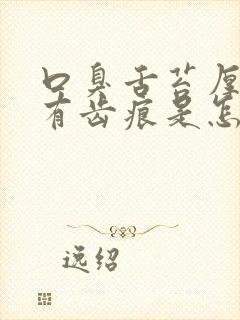 口臭舌苔厚
有齿痕是怎
逸绍